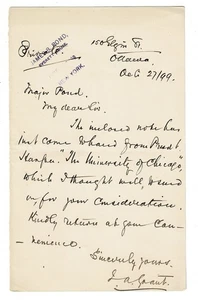 150 Elgin St.
Ottawa
Oct 27/99.
Private
JAMES B. POND,
NEW YORK.
Major Pond.
My dear Sir.
The inclosed note has
just come to hand from Prest
Harper. The University of Chicago",
which I thought well to send
on, for your consideration.
Kindly return at your con-
venience.
Sincerely yours.
J A Grant.